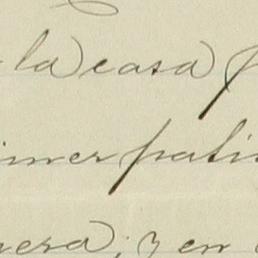 la casa
imer pati
nera; y en